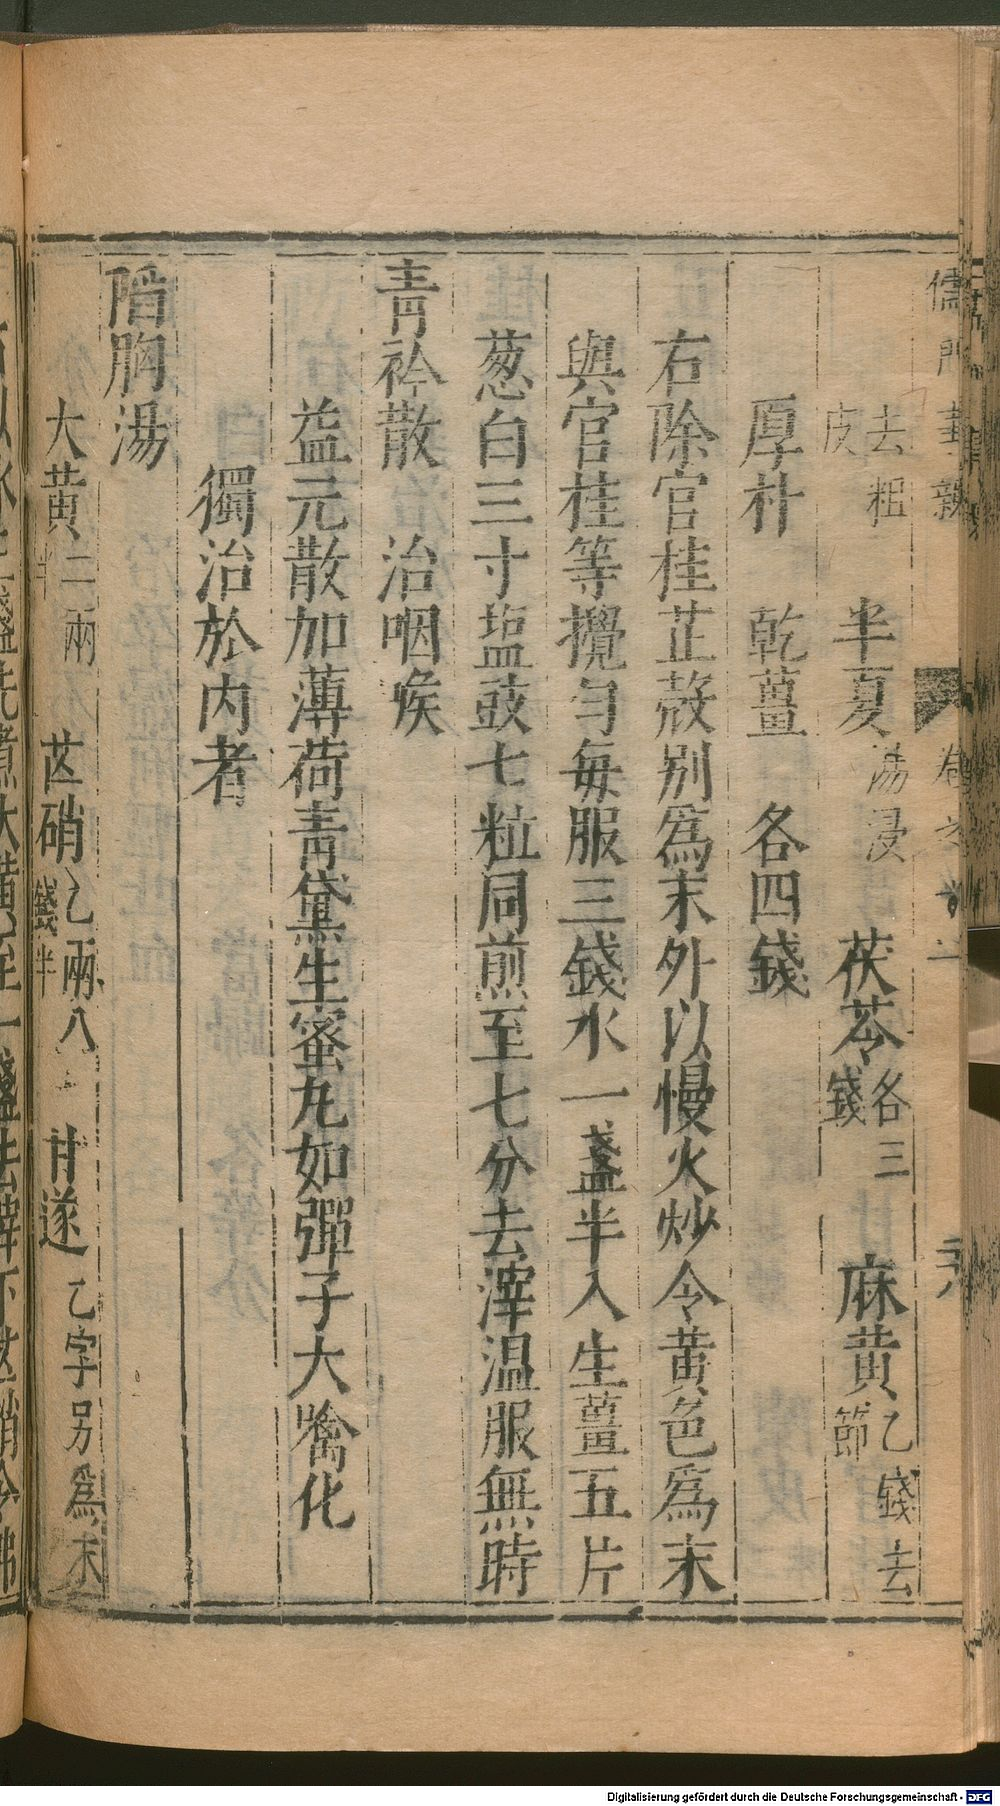 儒門事親 卷之十二
去粗皮 半夏湯浸 茯苓各三錢 麻黃乙錢去節
厚朴 乾薑 各四錢
右除官桂芷殼别爲末外以慢火炒令黃色爲末
與官桂等攪勻每服三錢水一盞半入生薑五片
葱白三寸塩豉七粒同煎至七分去滓温服無時
青衿散 治咽喉
益元散加薄荷青黛生蜜丸如彈子大噙化
獨治於内者
陷胸湯
大黃二兩半 芒硝乙兩八錢半 甘遂乙字另爲末
Digitalisierung gefördert durch die Deutsche Forschungsgemeinschaft - DFG